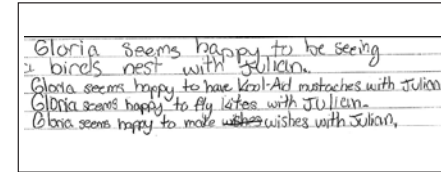 Gloria seems happy to be seeing
a birds nest with Julian.
Gloria seems happy to have Kool-Aid mustaches with Julian
Gloria seems happy to fly kites with Julian.
Gloria seems happy to make wishes wishes with Julian.